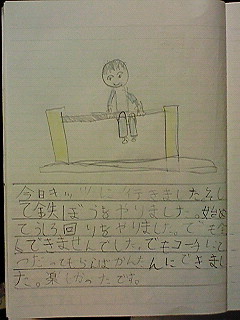 今日キッツに行きましたそし
て鉄ぼうをやりました。始め
てうしろ回りをやりました。でも全
んできませんでした。でもコーチに
てつだってもらえばかんたんにできまし
た。楽しかったです。